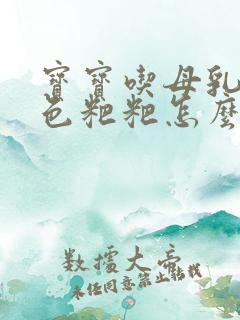 寶寶喫母乳
色粑粑怎麼
數據大帝
未經同意禁止轉載